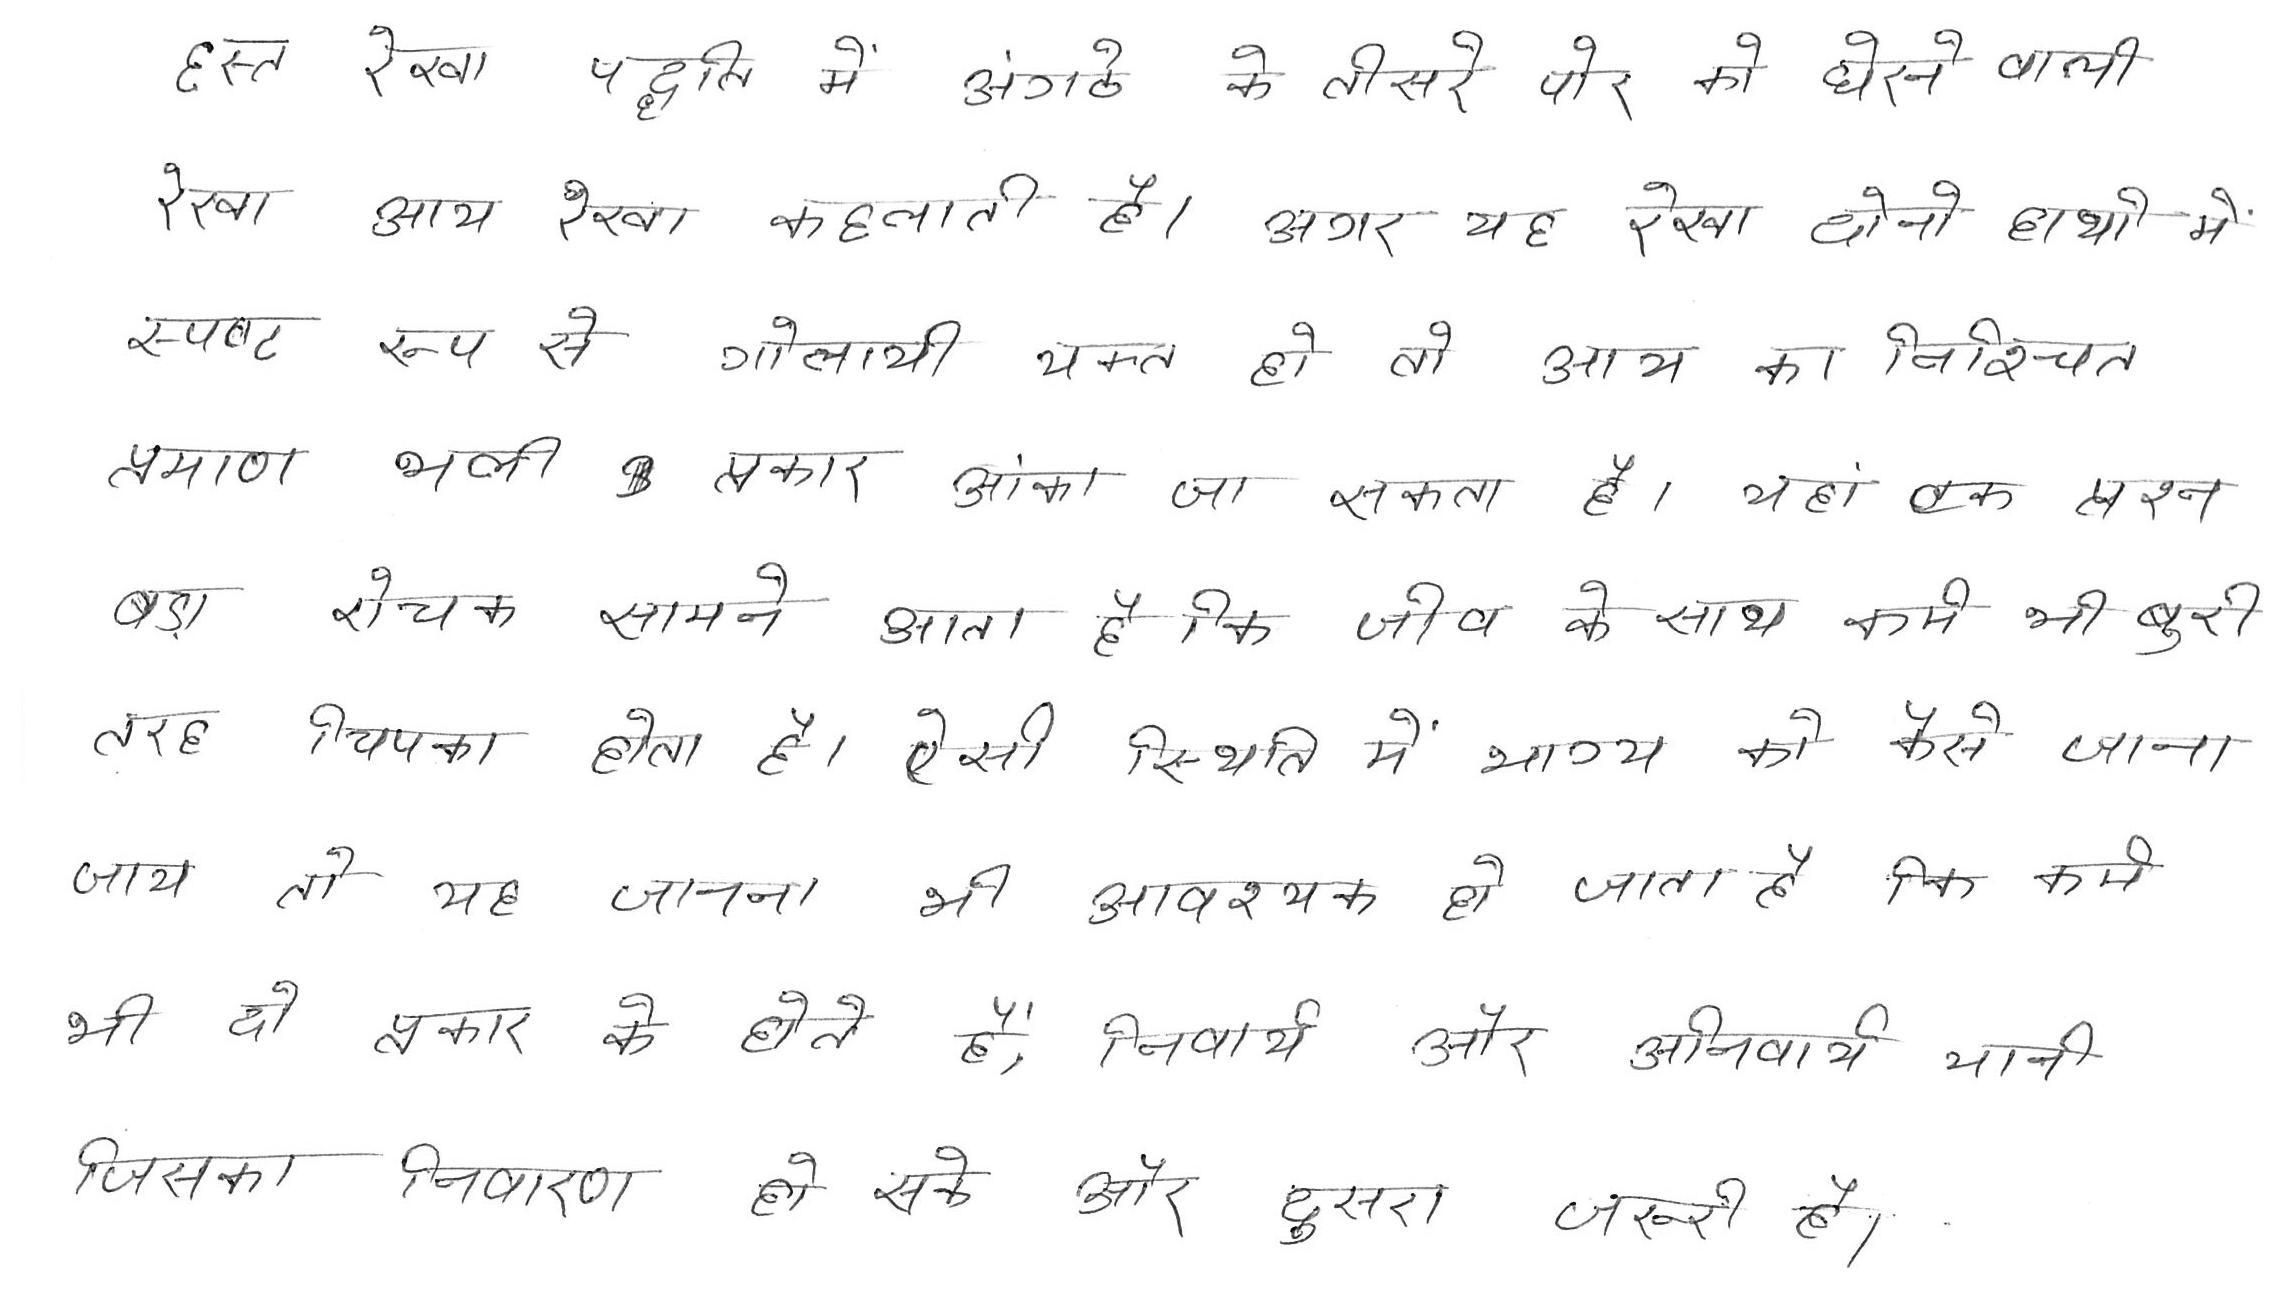 हस्त रेखा पद्धति में अंगठे के तीसरे पोर को घेरने वाली
रेखा आय रेखा कहलाती है। अगर यह रेखा दोनो हाथो में
स्पष्ट रूप से गोलायी यक्त हो तो आय का निश्चित
प्रमाण भली प्रकार आंका जा सकता है। यहां एक प्रश्न
बड़ा रोचक सामने आता है कि जीव के साथ कर्म भी बुरी
तरह चिपका होता है। ऐसी स्थिति में भाग्य को कैसे जाना
जाय तो यह जानना भी आवश्यक हो जाता है कि कर्म
भी दो प्रकार के होते हैं, निवार्य और अनिवार्य यानी
जिसका निवारण हो सके और दुसरा जरूरी है।